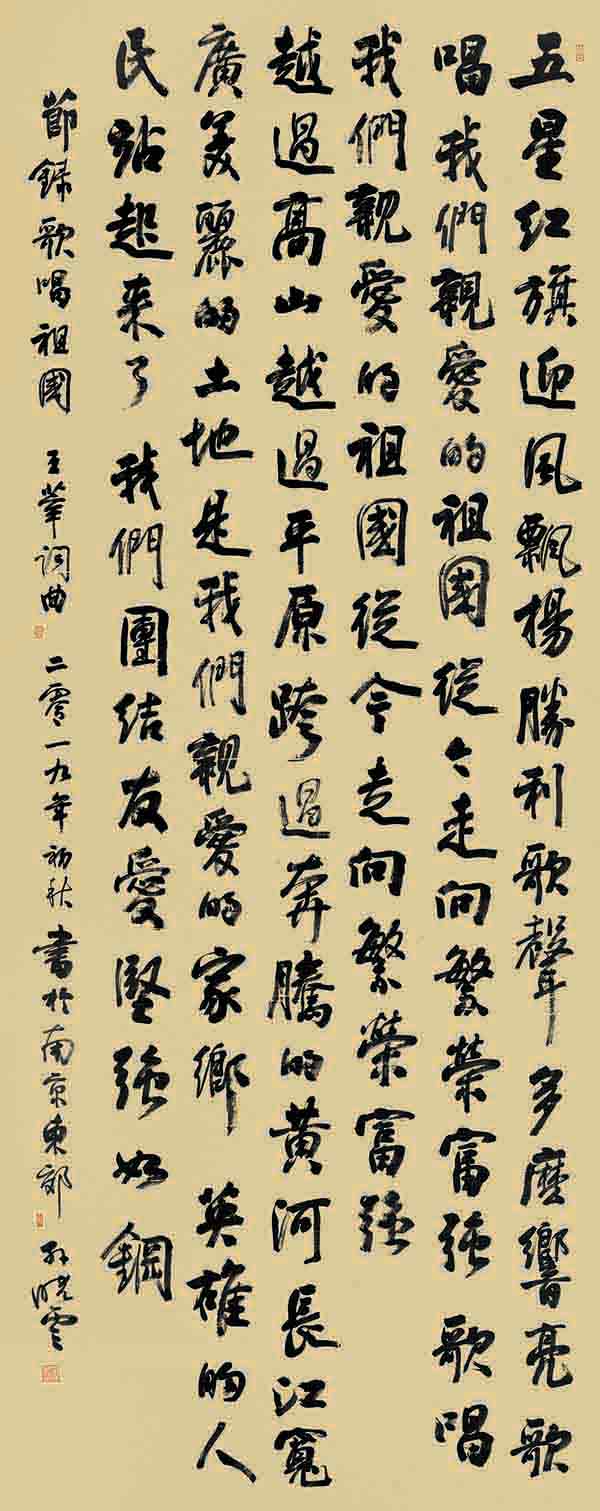 五星红旗迎風飄揚勝利歌聲多麽響亮歌
唱我們親愛的祖國從今走向繁榮富强 歌唱
我們親愛的祖國從今走向繁榮富强
越過高山越過平原跨過奔騰的黄河長江寬
廣美麗的土地是我們親愛的家鄉 英雄的人
民站起来了 我們團结友愛堅强如鋼
節録歌唱祖國 王莘词曲 二零一九年初秋書於南京東郊 孙曉雲